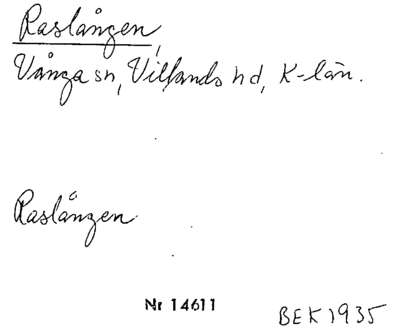 Raslången,
Vånga sn, Villands hd, K-län.
Raslången
Nr 14611
BEK 1935